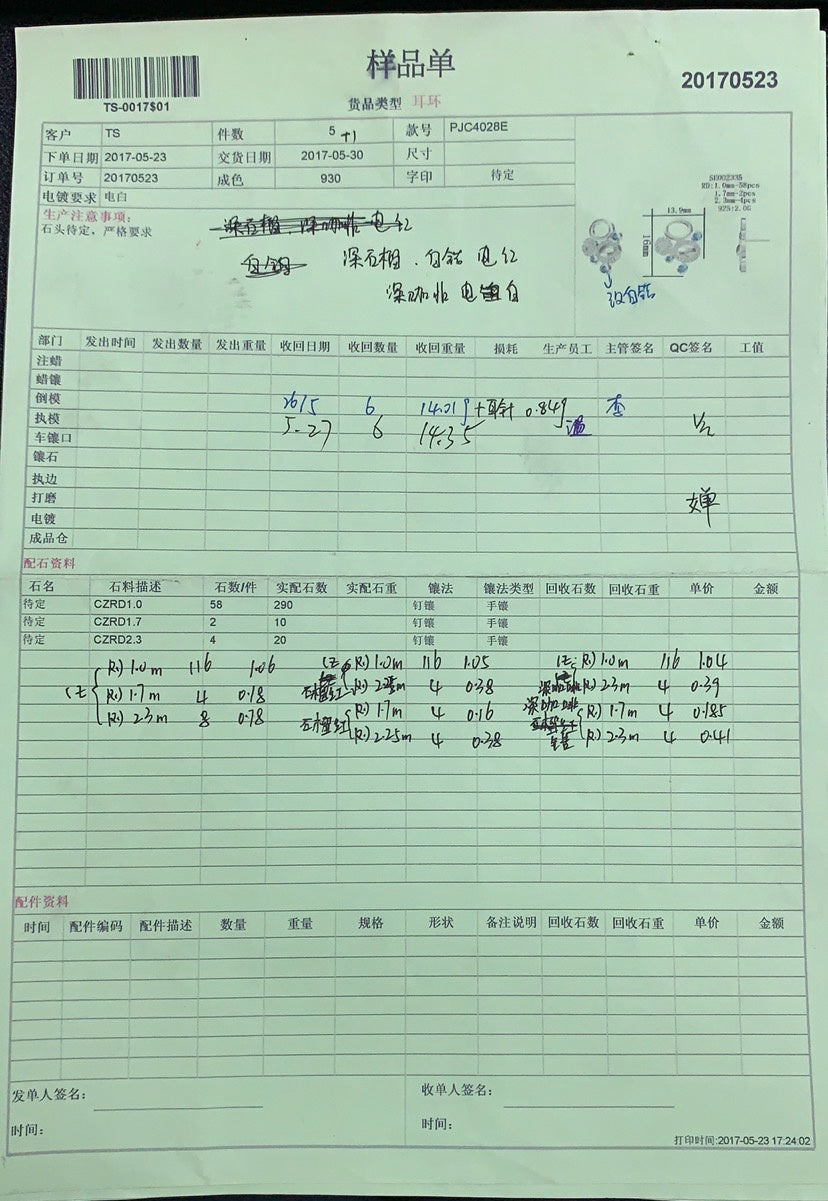 样品单
TS-0017$01
20170523
货品类型 耳环
客户 TS 件数 5 +1 款号 PJC4028E
下单日期 2017-05-23 交货日期 2017-05-30 尺寸
订单号 20170523 成色 930 字印 待定
电镀要求 电白
生产注意事项:
石头待定，严格要求
深石榴 . 白钻 电红
深咖啡 电白
SH002335
RD:1.0mm-58pcs
1.7mm-2pcs
2.3mm-4pcs
925:2.0G
13.9mm
16mm
改白钻
部门 发出时间 发出数量 发出重量 收回日期 收回数量 收回重量 损耗 生产员工 主管签名 QC签名 工值
注蜡
蜡镶
倒模 26/5 6 14.01g +耳针 0.84g
执模 5.27 6 14.35
车镶口
镶石
执边
打磨
电镀
成品仓
配石资料
石名 石料描述 石数/件 实配石数 实配石重 镶法 镶法类型 回收石数 回收石重 单价 金额
待定 CZRD1.0 58 290 钉镶 手镶
待定 CZRD1.7 2 10 钉镶 手镶
待定 CZRD2.3 4 20 钉镶 手镶
R) 1.0m 116 1.06 R) 1.0m 116 1.05 R) 1.0m 116 1.04
R) 1.7m 4 0.18 石榴红 R) 2.25m 4 0.38 深咖啡 R) 2.3m 4 0.39
R) 2.3m 8 0.78 石榴红 R) 1.7m 4 0.16 深咖啡 R) 1.7m 4 0.185
R) 2.25m 4 0.38 R) 2.3m 4 0.41
配件资料
时间 配件编码 配件描述 数量 重量 规格 形状 备注说明 回收石数 回收石重 单价 金额
发单人签名： 收单人签名：
时间： 时间：
打印时间:2017-05-23 17:24:02